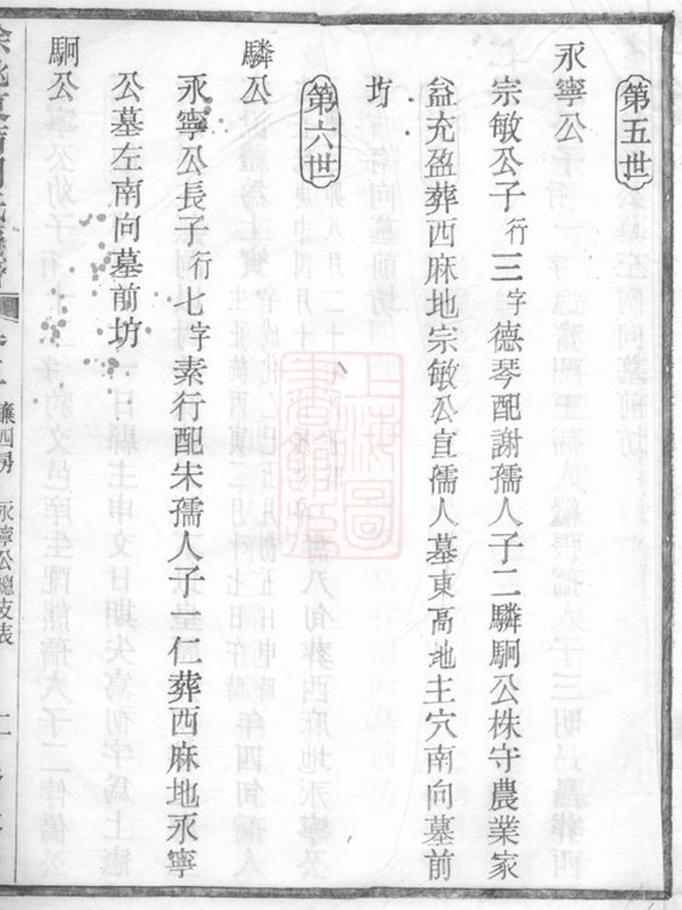 第五世
永寧公
宗敏公子行三字德琴配謝孺人子二驎駉公株守農業家
益充盈葬西麻地宗敏公宣孺人墓東高地主穴南向墓前
坊
第六世
驎公
永寧公長子行七字素行配宋孺人子一仁葬西麻地永寧
公墓左南向墓前坊
駉公
廉四房 永寧公總支表
上海圖書館藏